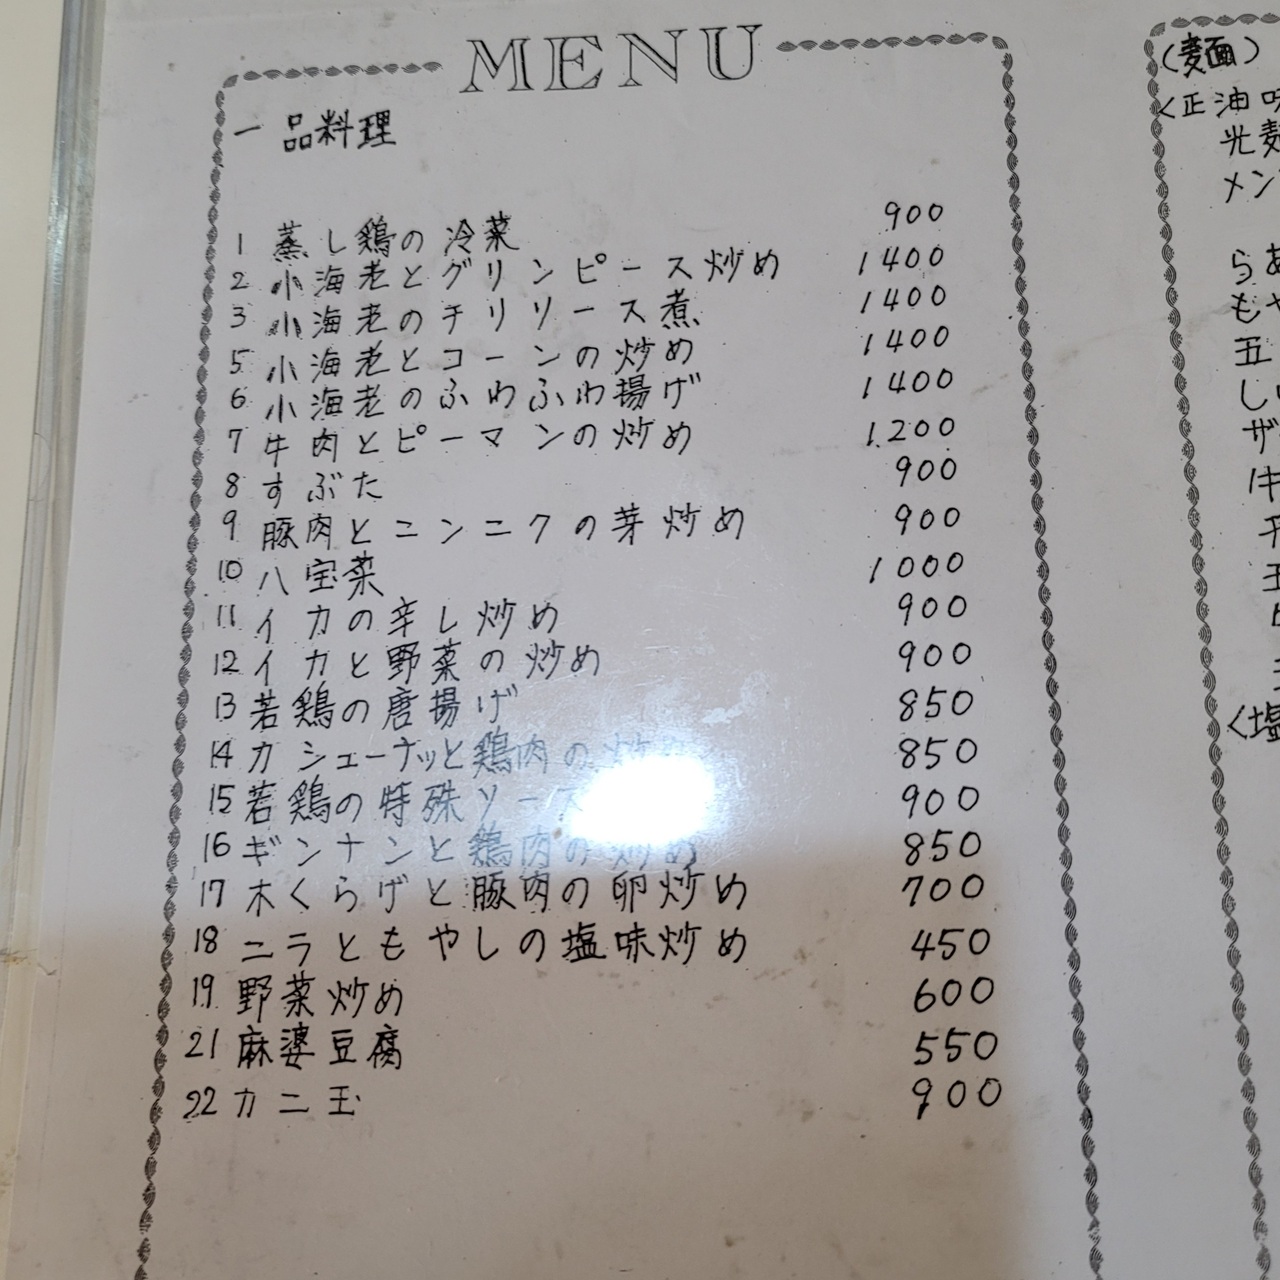 MENU
一品料理
1 蒸し鶏の冷菜 900
2 小海老とグリンピース炒め 1400
3 小海老のチリソース煮 1400
5 小海老とコーンの炒め 1400
6 小海老のふわふわ揚げ 1400
7 牛肉とピーマンの炒め 1.200
8 すぶた 900
9 豚肉とニンニクの芽炒め 900
10 八宝菜 1000
11 イカの辛し炒め 900
12 イカと野菜の炒め 900
13 若鶏の唐揚げ 850
14 カシューナッと鶏肉の炒め 850
15 若鶏の特殊ソース 900
16 ギンナンと鶏肉の炒め 850
17 木くらげと豚肉の卵炒め 700
18 ニラともやしの塩味炒め 450
19 野菜炒め 600
21 麻婆豆腐 550
22 カニ玉 900
(麺)
<正油味
光麺
メン
らあ
もや
五
しい
ザ
<塩